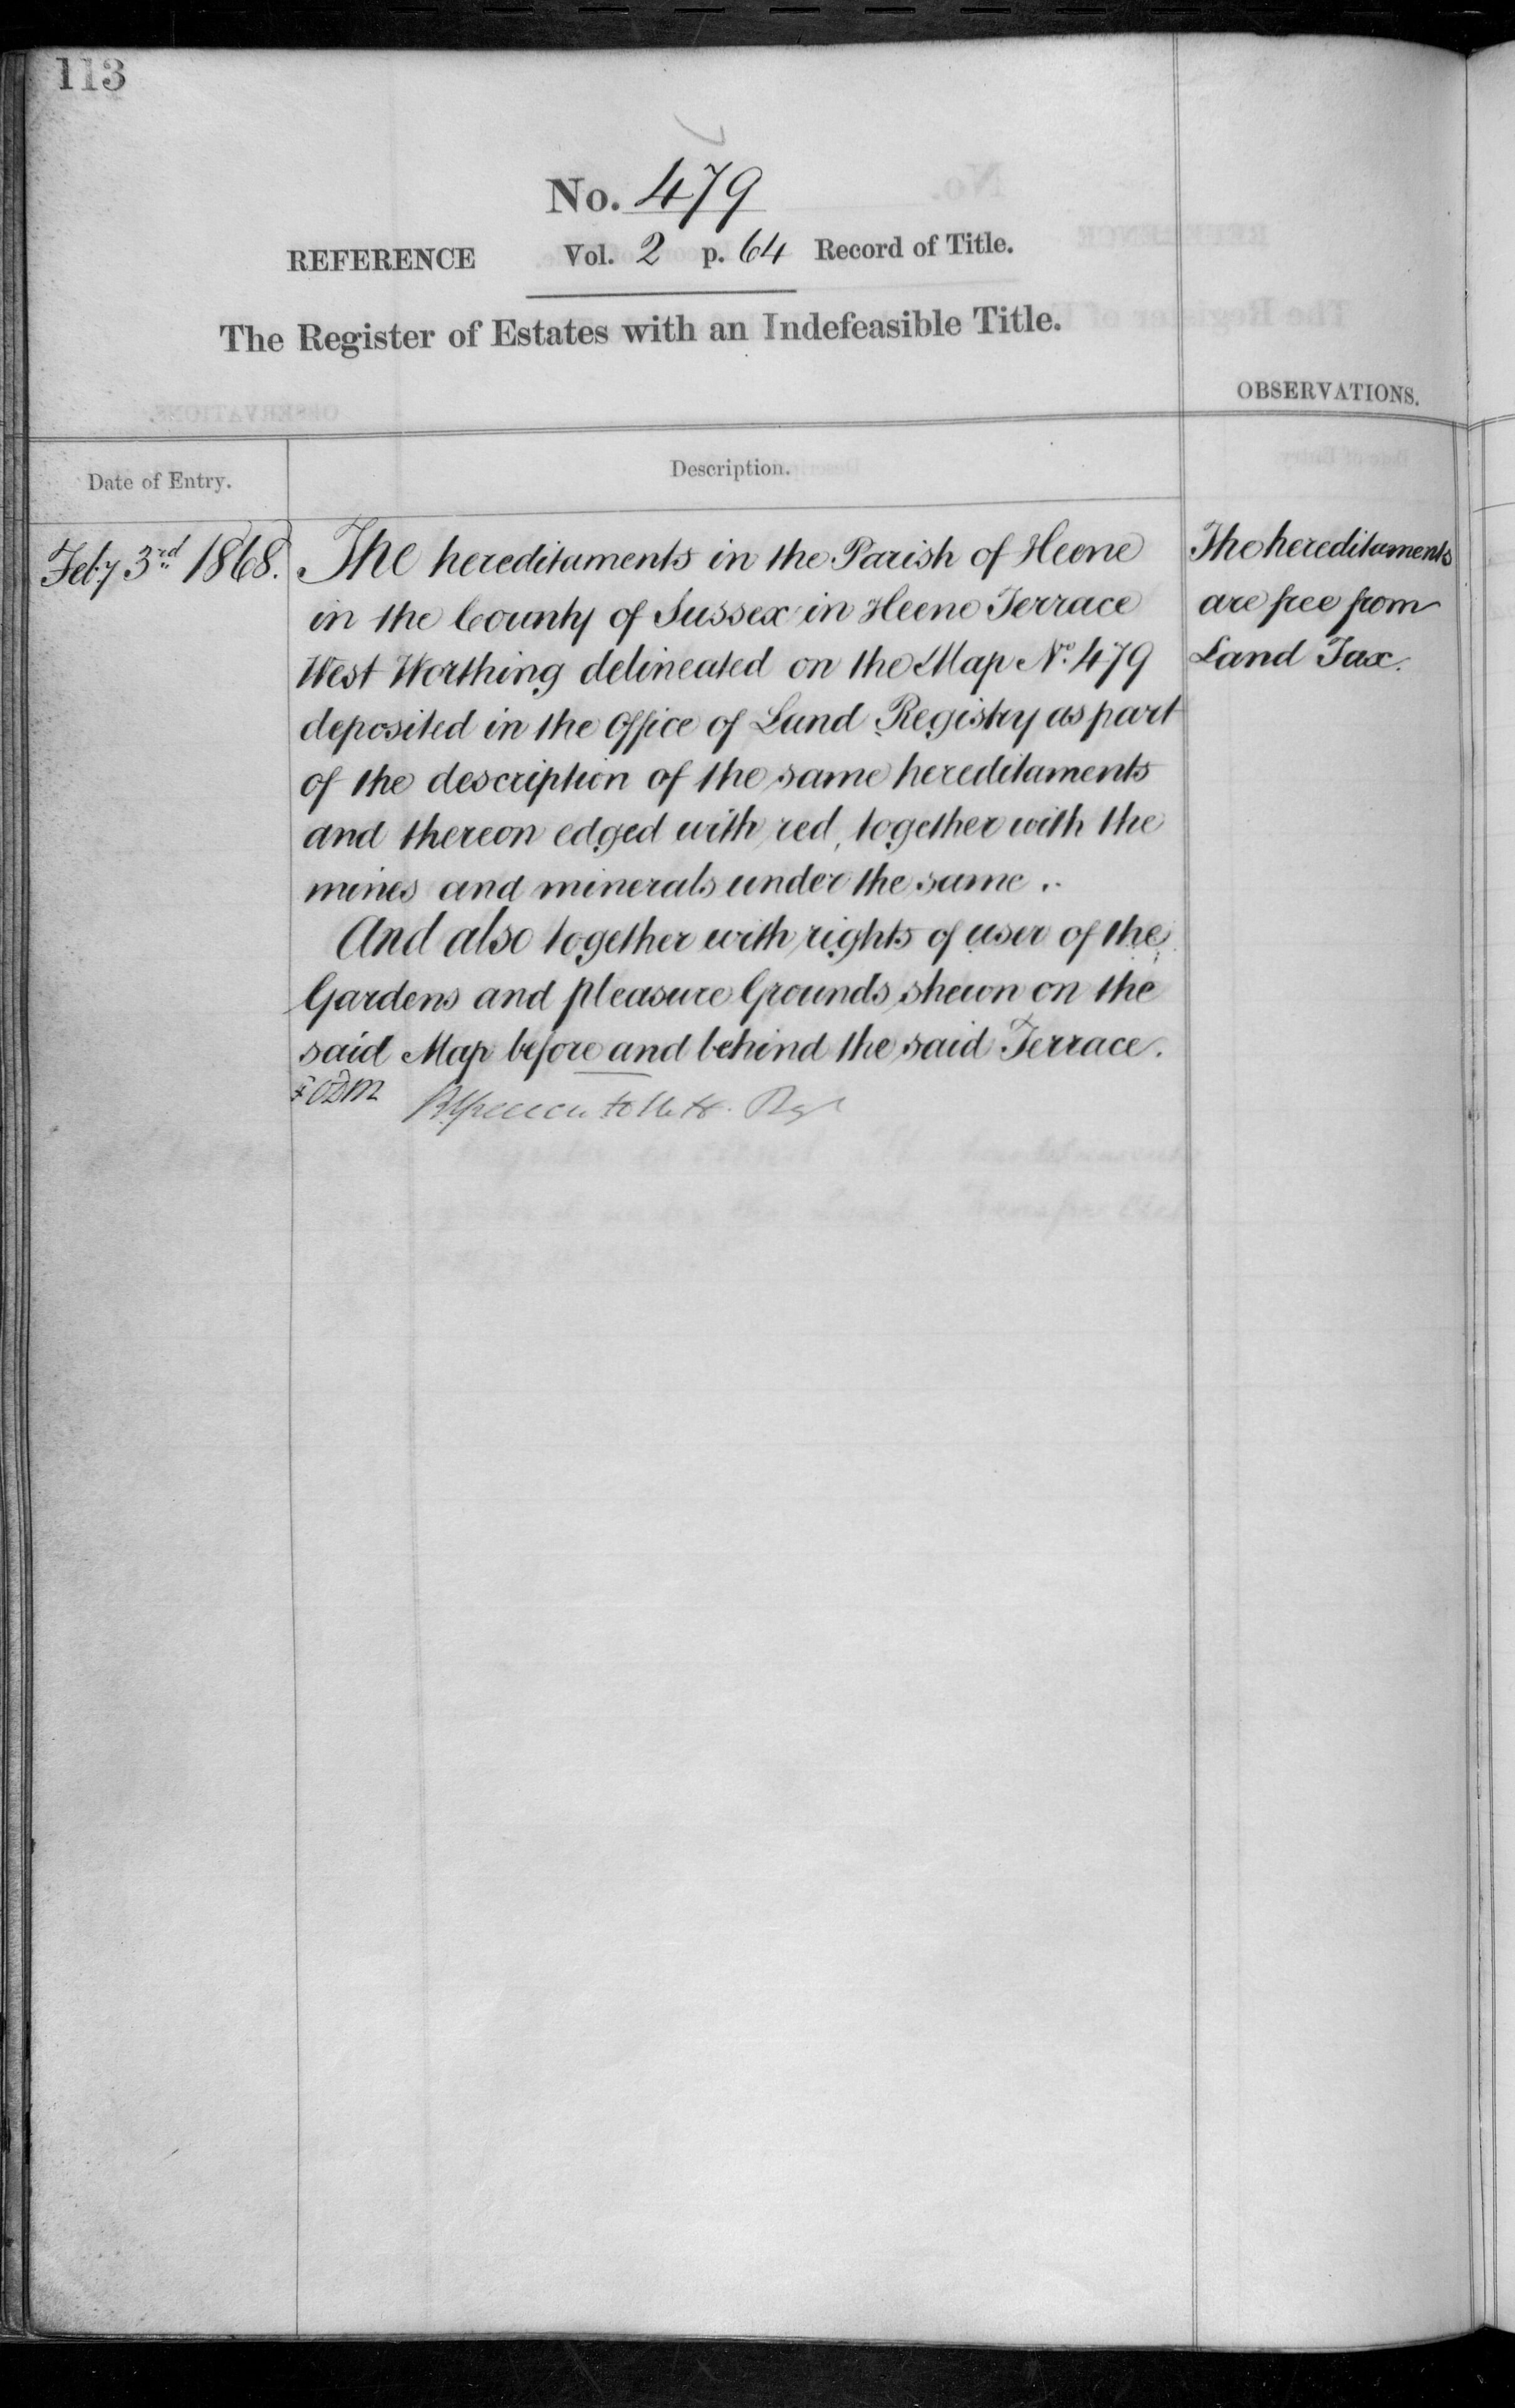 113
No. 479
REFERENCE Vol. 2 p. 64 Record of Title.
The Register of Estates with an Indefeasible Title.
OBSERVATIONS.
Date of Entry.
Description.
Feb:y 3rd 1868.
The hereditaments in the Parish of Heene
in the County of Sussex in Heene Terrace
West Worthing delineated on the Map No. 479
deposited in the Office of Land Registry as part
of the description of the same hereditaments
and thereon edged with red, together with the
mines and minerals under the same..
And also together with rights of user of the
Gardens and pleasure Grounds shewn on the
said Map before and behind the said Terrace.
The hereditaments
are free from
Land Tax.